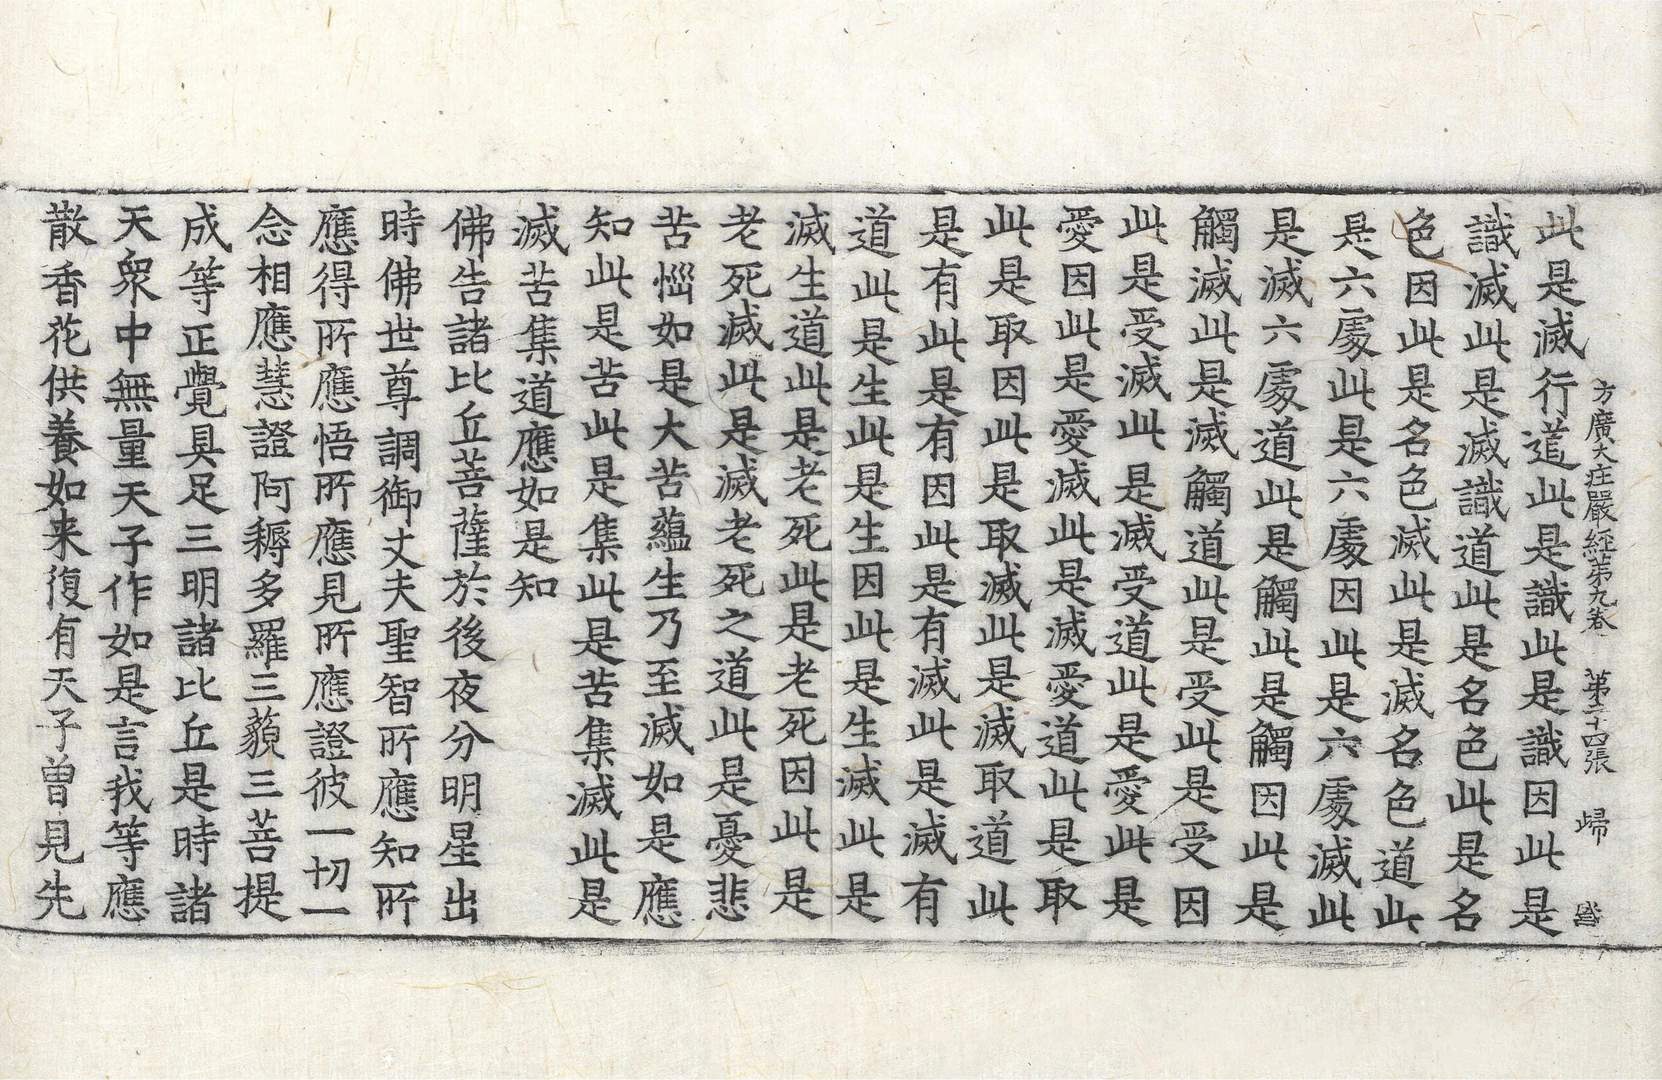 方廣大莊嚴經第九卷 第二十四張 歸
此是滅行道此是識此是識因此是
識滅此是滅識道此是名色此是名
色因此是名色滅此是滅名色道此
是六處此是六處因此是六處滅此
是滅六處道此是觸此是觸因此是
觸滅此是滅觸道此是受此是受因
此是受滅此是滅受道此是愛此是
愛因此是愛滅此是滅愛道此是取
此是取因此是取滅此是滅取道此
是有此是有因此是有滅此是滅有
道此是生此是生因此是生滅此是
滅生道此是老死此是老死因此是
老死滅此是滅老死之道此是憂悲
苦惱如是大苦蘊生乃至滅如是應
知此是苦此是集此是苦集滅此是
滅苦集道應如是知
佛告諸比丘菩薩於後夜分明星出
時佛世尊調御丈夫聖智所應知所
應得所應悟所應見所應證彼一切一
念相應慧證阿耨多羅三藐三菩提
成等正覺具足三明諸比丘是時諸
天衆中無量天子作如是言我等應
散香花供養如来復有天子曾見先